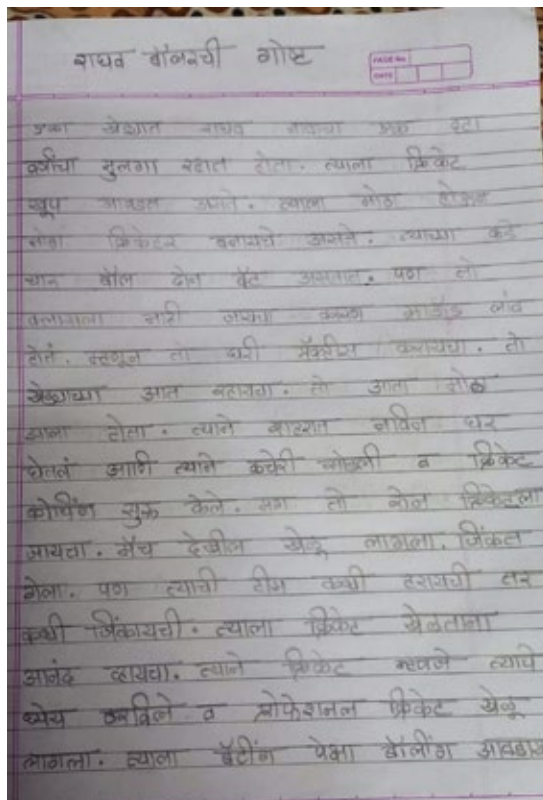 राघव बॉलरची गोष्ट
PAGE No
DATE
एका खेड्यात राघव नावाचा एक
वर्षाचा मुलगा रहात होता. त्याला क्रिकेट
खूप आवडत असे. त्याला मोठा होऊन
मोठा क्रिकेटर बनायचे असते. त्याच्या कडे
चार बॉल दोन बॅट असतात. पण तो
क्लासला नाही कारण लांब
होतं. म्हणून तो घरी प्रॅक्टीस करायचा. तो
खेड्याच्या आत रहायचा. तो आता मोठा
झाला होता. त्याने शहरात नविन घर
घेतलं आणि त्याने कचेरी सोडली व क्रिकेट
कोचिंग सुरू केले. मग तो रोज क्रिकेटला
जायचा. मॅच देखील खेळू लागला. जिंकत
गेला. पण त्याची टीम कधी हरायची तर
कधी जिंकायची. त्याला क्रिकेट खेळताना
आनंद व्हायचा. त्याने क्रिकेट म्हणजे त्याचे
ध्येय ठरविले व प्रोफेशनल क्रिकेट खेळू
लागला. त्याला बॅटींग पेक्षा बॉलींग आवडायच